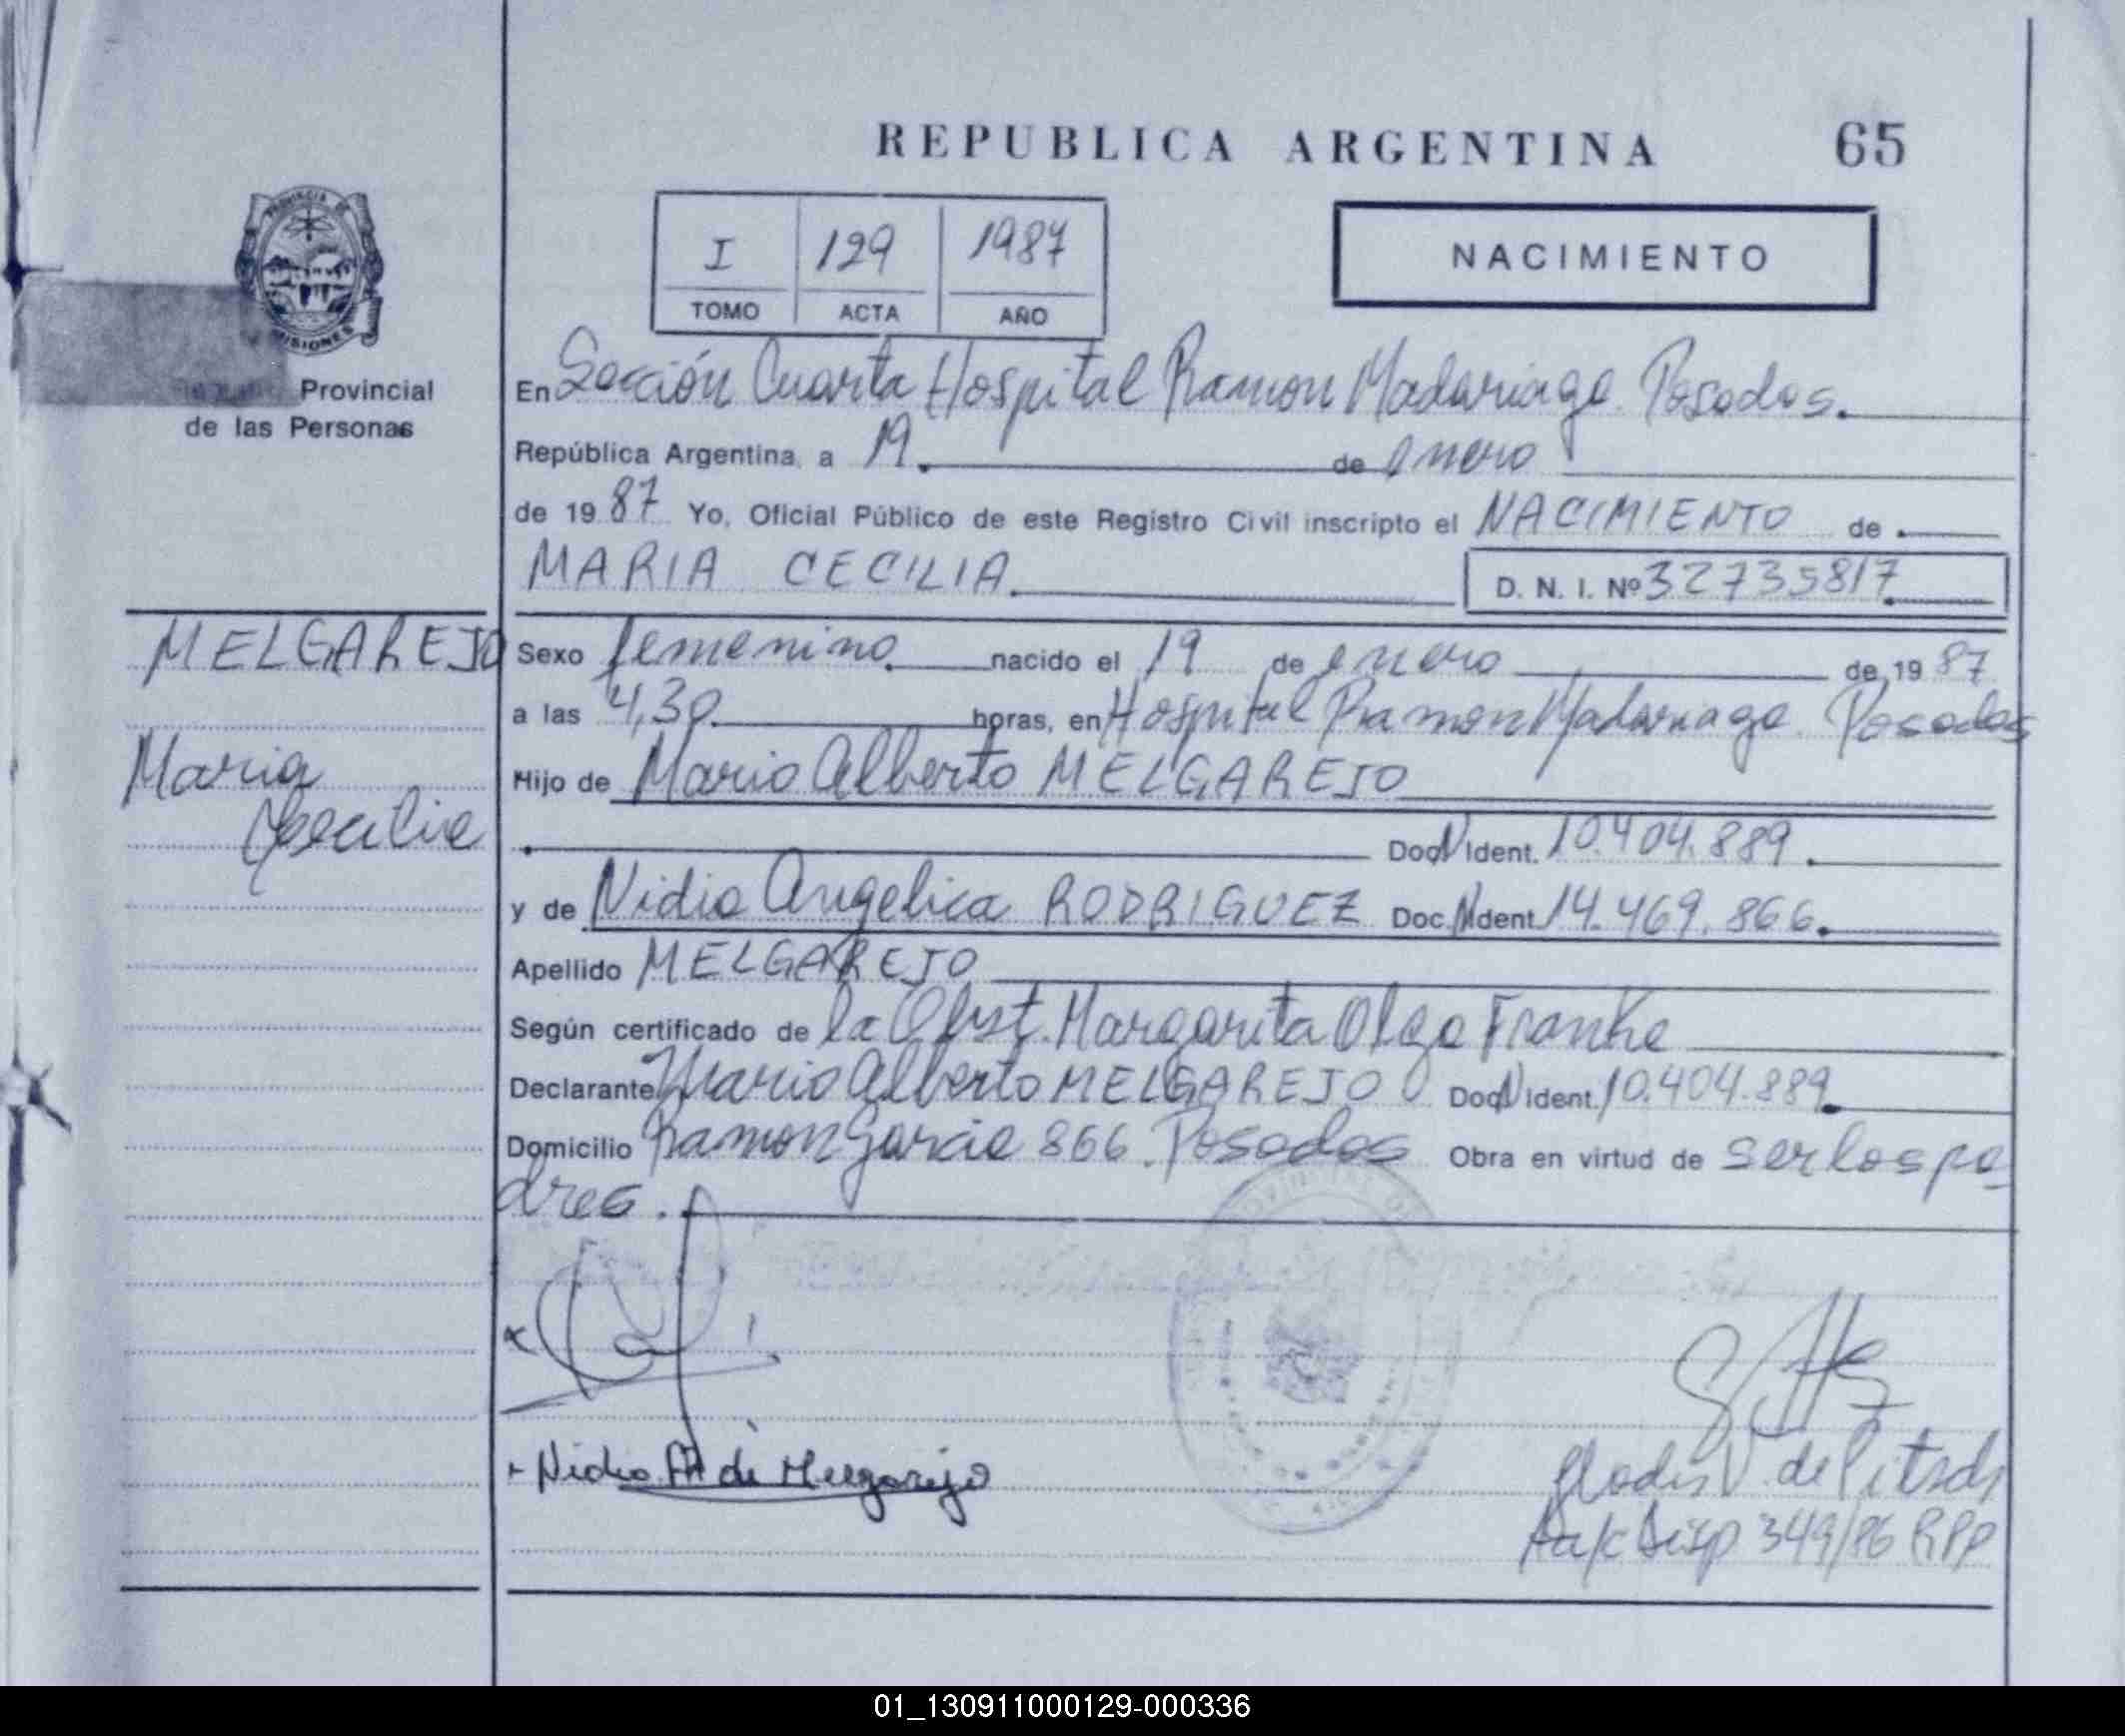 REPUBLICA ARGENTINA 65
PROVINCIA DE MISIONES
Provincial
de las Personas
I 129 1987
TOMO ACTA AÑO
NACIMIENTO
En Sección Cuarta Hospital Ramon Madariaga Posadas.
República Argentina, a 19. de enero
de 19 87 Yo, Oficial Público de este Registro Civil inscripto el NACIMIENTO de
MARIA CECILIA. D. N. I. Nº 32735817
MELGAREJO
Maria
Cecilia
Sexo femenino nacido el 19 de enero de 19 87
a las 4,30 horas, en Hospital Ramon Madariaga Posadas
Hijo de Mario Alberto MELGAREJO
Doc N Ident. 10.404.889.
y de Nidia Angelica RODRIGUEZ Doc. N Ident 14.469.866.
Apellido MELGAREJO
Según certificado de la Obst. Margarita Olga Franke
Declarante Mario Alberto MELGAREJO Doc N Ident. 10.404.889.
Domicilio Ramon Garcia 866. Posadas Obra en virtud de ser los pa
dres.
Nidia A de Melgarejo
Gladis V. de Pitsch
Disp 349/86 RPP
01_130911000129-000336